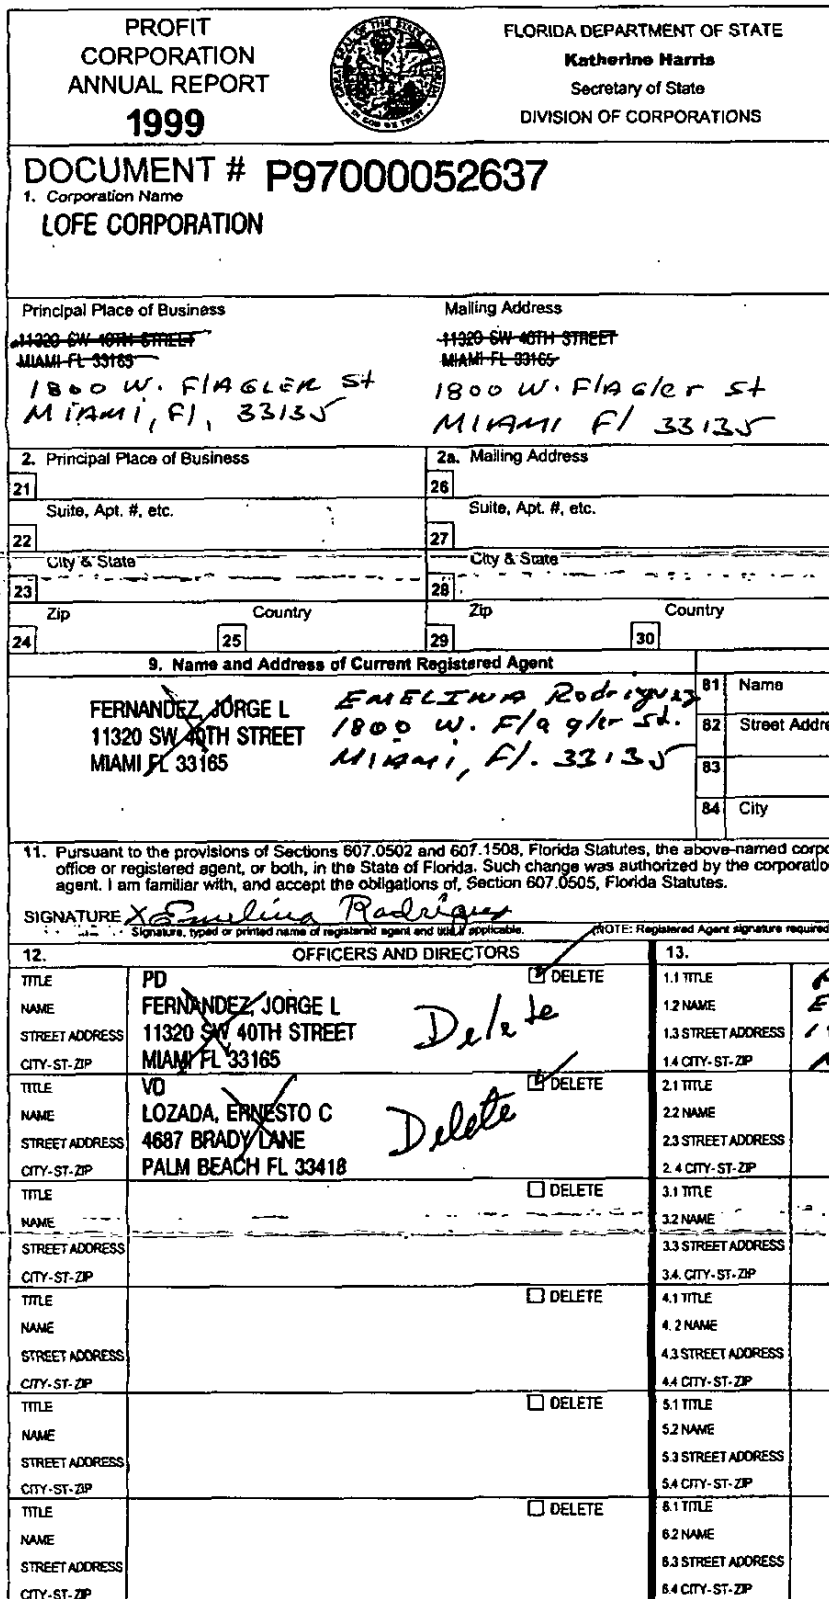 PROFIT
CORPORATION
ANNUAL REPORT
1999
FLORIDA DEPARTMENT OF STATE
Katherine Harris
Secretary of State
DIVISION OF CORPORATIONS
GREAT SEAL OF THE STATE OF FLORIDA
IN GOD WE TRUST
DOCUMENT # P97000052637
1. Corporation Name
LOFE CORPORATION
Principal Place of Business
11320 SW 40TH STREET
MIAMI FL 33165
1800 W. FlAGLER St
MIAMI, Fl, 33135
Mailing Address
11320 SW 40TH STREET
MIAMI FL 33165
1800 W. FlAGler St
MIAMI Fl 33135
2. Principal Place of Business
2a. Mailing Address
21
26
Suite, Apt. #, etc.
Suite, Apt. #, etc.
22
27
City & State
City & State
23
28
Zip Country
Zip Country
24 25 29 30
9. Name and Address of Current Registered Agent
FERNANDEZ, JORGE L
11320 SW 40TH STREET
MIAMI FL 33165
EMELINA Rodriguez
1800 W. Flagler St.
MIAMI, Fl. 33135
81 Name
82 Street Addre
83
84 City
11. Pursuant to the provisions of Sections 607.0502 and 607.1508, Florida Statutes, the above-named corpo
office or registered agent, or both, in the State of Florida. Such change was authorized by the corporatio
agent. I am familiar with, and accept the obligations of, Section 607.0505, Florida Statutes.
SIGNATURE X Emelina Rodriguez
Signature, typed or printed name of registered agent and title if applicable. (NOTE: Registered Agent signature required
12. OFFICERS AND DIRECTORS 13.
TITLE PD DELETE
NAME FERNANDEZ, JORGE L
STREET ADDRESS 11320 SW 40TH STREET
CITY-ST-ZIP MIAMI FL 33165
Delete
1.1 TITLE
1.2 NAME E
1.3 STREET ADDRESS
1.4 CITY-ST-ZIP
TITLE VD DELETE
NAME LOZADA, ERNESTO C
STREET ADDRESS 4687 BRADY LANE
CITY-ST-ZIP PALM BEACH FL 33418
Delete
2.1 TITLE
2.2 NAME
2.3 STREET ADDRESS
2.4 CITY-ST-ZIP
TITLE DELETE
NAME
STREET ADDRESS
CITY-ST-ZIP
3.1 TITLE
3.2 NAME
3.3 STREET ADDRESS
3.4. CITY-ST-ZIP
TITLE DELETE
NAME
STREET ADDRESS
CITY-ST-ZIP
4.1 TITLE
4.2 NAME
4.3 STREET ADDRESS
4.4 CITY-ST-ZIP
TITLE DELETE
NAME
STREET ADDRESS
CITY-ST-ZIP
5.1 TITLE
5.2 NAME
5.3 STREET ADDRESS
5.4 CITY-ST-ZIP
TITLE DELETE
NAME
STREET ADDRESS
CITY-ST-ZIP
6.1 TITLE
6.2 NAME
6.3 STREET ADDRESS
6.4 CITY-ST-ZIP